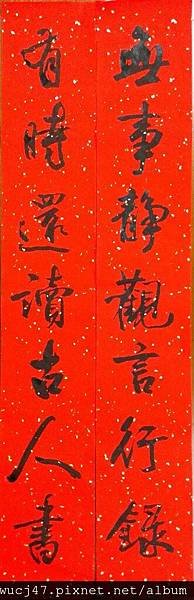 無事靜觀言行錄
有時還讀古人書
wucj47.pixnet.net/album